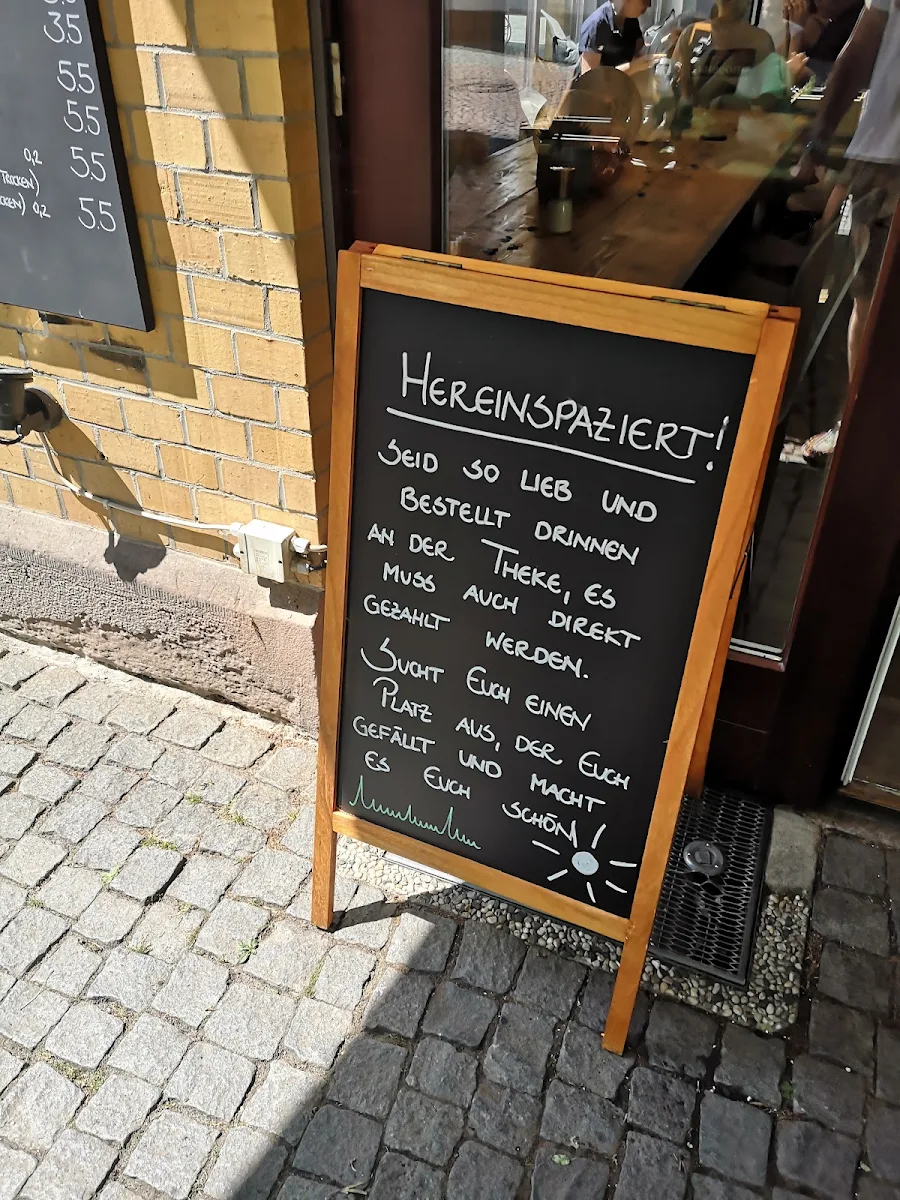 3.5
5.5
5.5
0,2 5.5
TROCKEN)
0,2 5.5
HEREINSPAZIERT!
SEID SO LIEB UND
BESTELLT DRINNEN
AN DER THEKE, ES
MUSS AUCH DIREKT
GEZAHLT WERDEN.
SUCHT EUCH EINEN
PLATZ AUS, DER EUCH
GEFÄLLT UND MACHT
ES EUCH SCHÖN